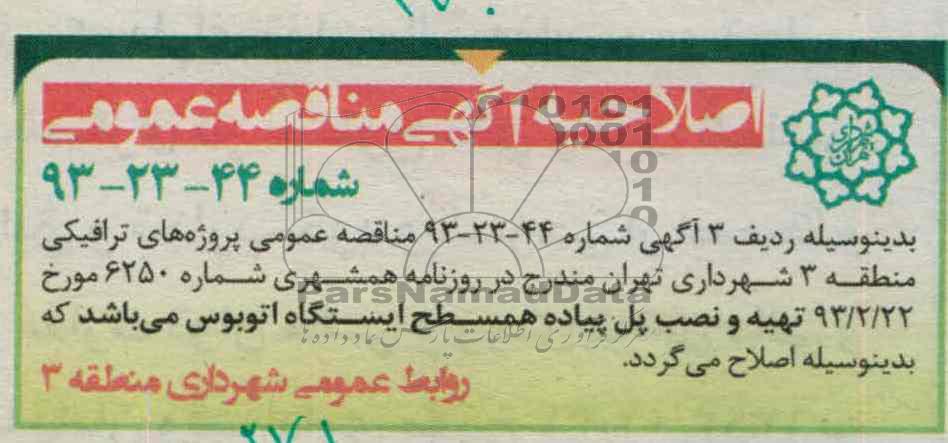 ۲۷۰
اصلاحیه آگهی مناقصه عمومی
شماره ۴۴-۲۳-۹۳
بدینوسیله ردیف ۳ آگهی شماره ۴۴-۲۳-۹۳ مناقصه عمومی پروژه‌های ترافیکی
منطقه ۳ شهرداری تهران مندرج در روزنامه همشهری شماره ۶۲۵۰ مورخ
۹۳/۲/۲۲ تهیه و نصب پل پیاده همسطح ایستگاه اتوبوس می‌باشد که
بدینوسیله اصلاح می‌گردد.
روابط عمومی شهرداری منطقه ۳
ParsNamadData
۲۷۱